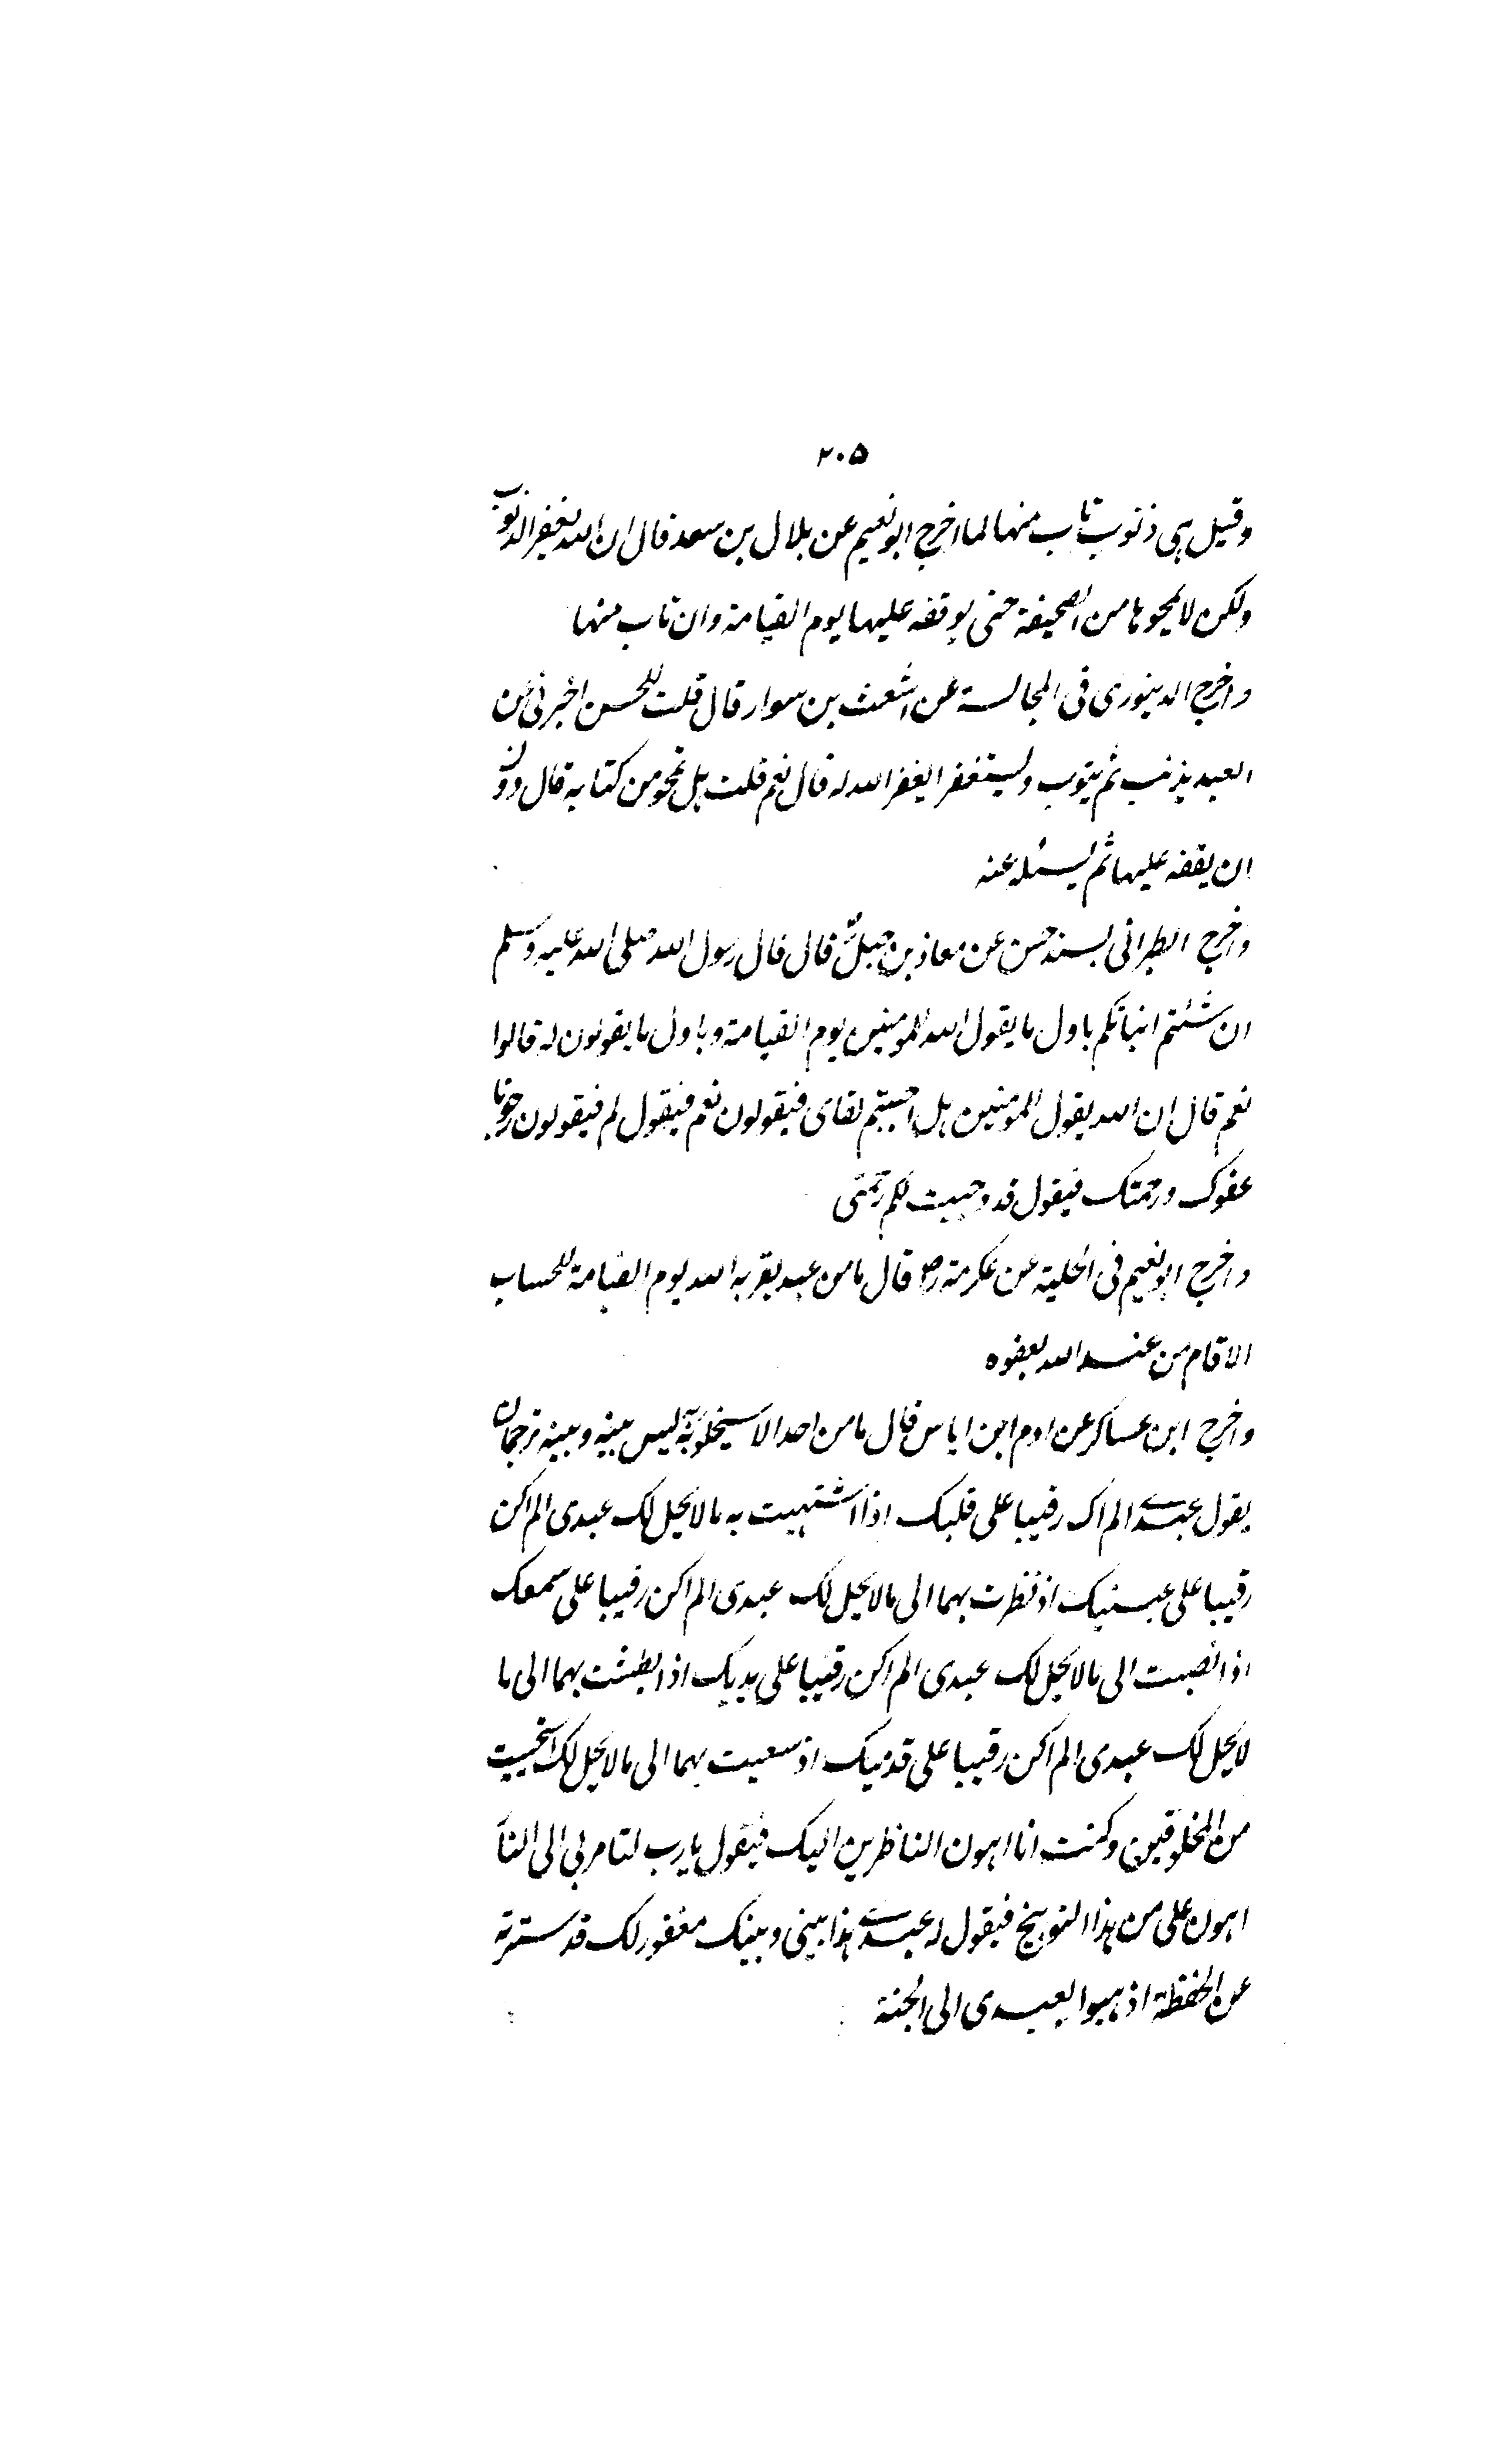 ٢٠٥
وقيل هى ذنوب تاب منها لما اخرج ابو نعيم عن بلال بن سعد قال ان الله يغفر الذنوب
ولكن لا يمحوها من الصحيفة حتى يوقفه عليها يوم القيامة وان تاب منها
واخرج الدينورى فى المجالسة عن اشعث بن سوار قال قلت للحسن اخبرنى عن
العبد يذنب ثم يتوب ويستغفر ايغفر الله له قال نعم قلت هل تمحو من كتابه قال دون
ان يقفه عليها ثم يسئله عنه
واخرج الطبرانى بسند حسن عن معاذ بن جبلؓ قال قال رسول الله صلى الله عليه وسلم
ان شئتم انباتكم باول ما يقول الله للمومنين يوم القيامة وباول ما يقولون له قالوا
نعم قال ان الله يقول للمومنين هل احببتم لقاى فيقولون نعم فيقول لم فيقولون رجونا
عفوك ورحمتك فيقول قد وجبت لكم رحمتى
واخرج ابو نعيم فى الحلية عن عكرمة رض قال ما من عبد يقربه الله يوم القيامة للحساب
الا قام من عند الله بعفوه
واخرج ابن عساكر عن ادم ابن اياس قال ما من احد الا سيخلو به ليس بينه وبينه ترجمان
يقول عبدى الم اك رقيبا على قلبك اذا اشتهيت به ما لا يحل لك عبدى الم اكن
رقيبا على عينيك اذ نظرت بهما الى ما لا يحل لك عبدى الم اكن رقيبا على سمعك
اذ انصبت الى ما لا يحل لك عبدى الم اكن رقيبا على يديك اذ ابطشت بهما الى ما
لا يحل لك عبدى الم اكن رقيبا على قدميك اذ سعيت بهما الى ما لا يحل لك استحييت
من المخلوقين وكنت انا اهون الناظرين اليك فيقول يا رب لتامر بى الى النار
اهون على من هذا التوبيخ فيقول له عبدى هذا بينى وبينك مغفور لك قد سترته
عن الحفظة اذهبوا بعبدى الى الجنة